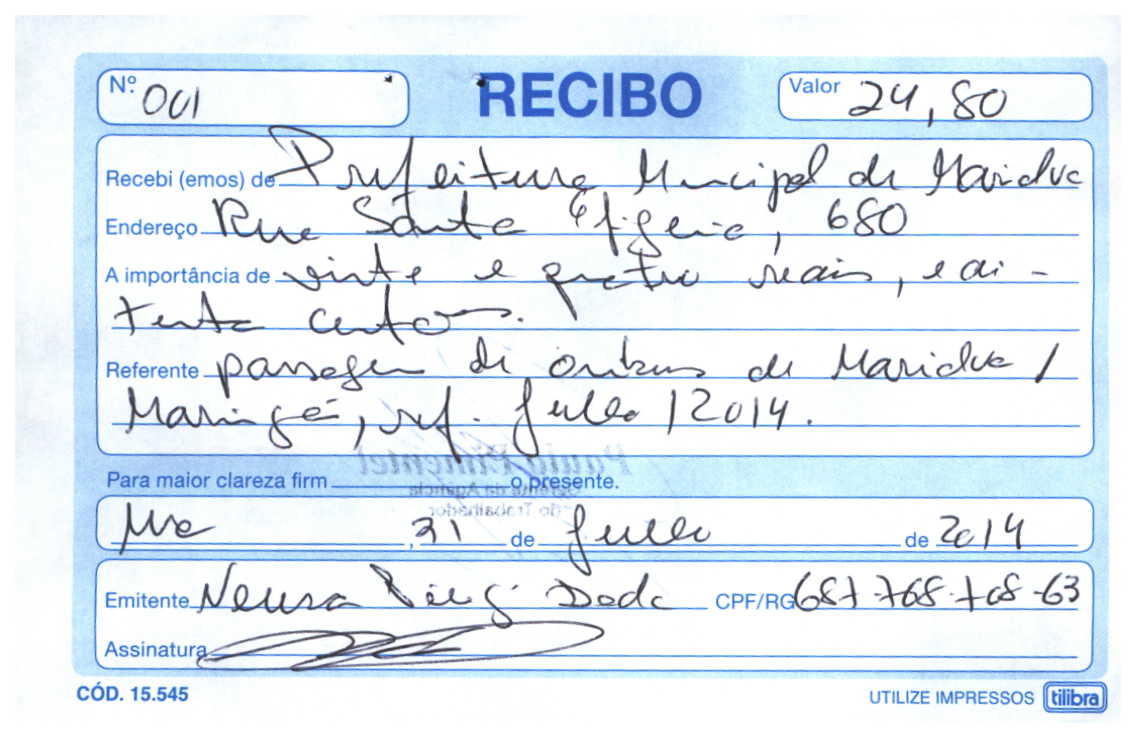 Nº 001 RECIBO Valor 24,80
Recebi (emos) de Prefeitura Muncipal de Marialva
Endereço Rua Santa Efigenia, 680
A importância de vinte e quatro reais, e oi-
tenta centavos.
Referente passagem de ônibus de Marialva /
Maringá, ref. Julho / 2014.
Paulo Pimentel
Gerente da Agência
do Trabalhador
Para maior clareza firm o presente.
Mva , 31 de Julho de 2014
Emitente Neusa Dada CPF/RG 687.768.708-63
Assinatura
CÓD. 15.545 UTILIZE IMPRESSOS tilibra